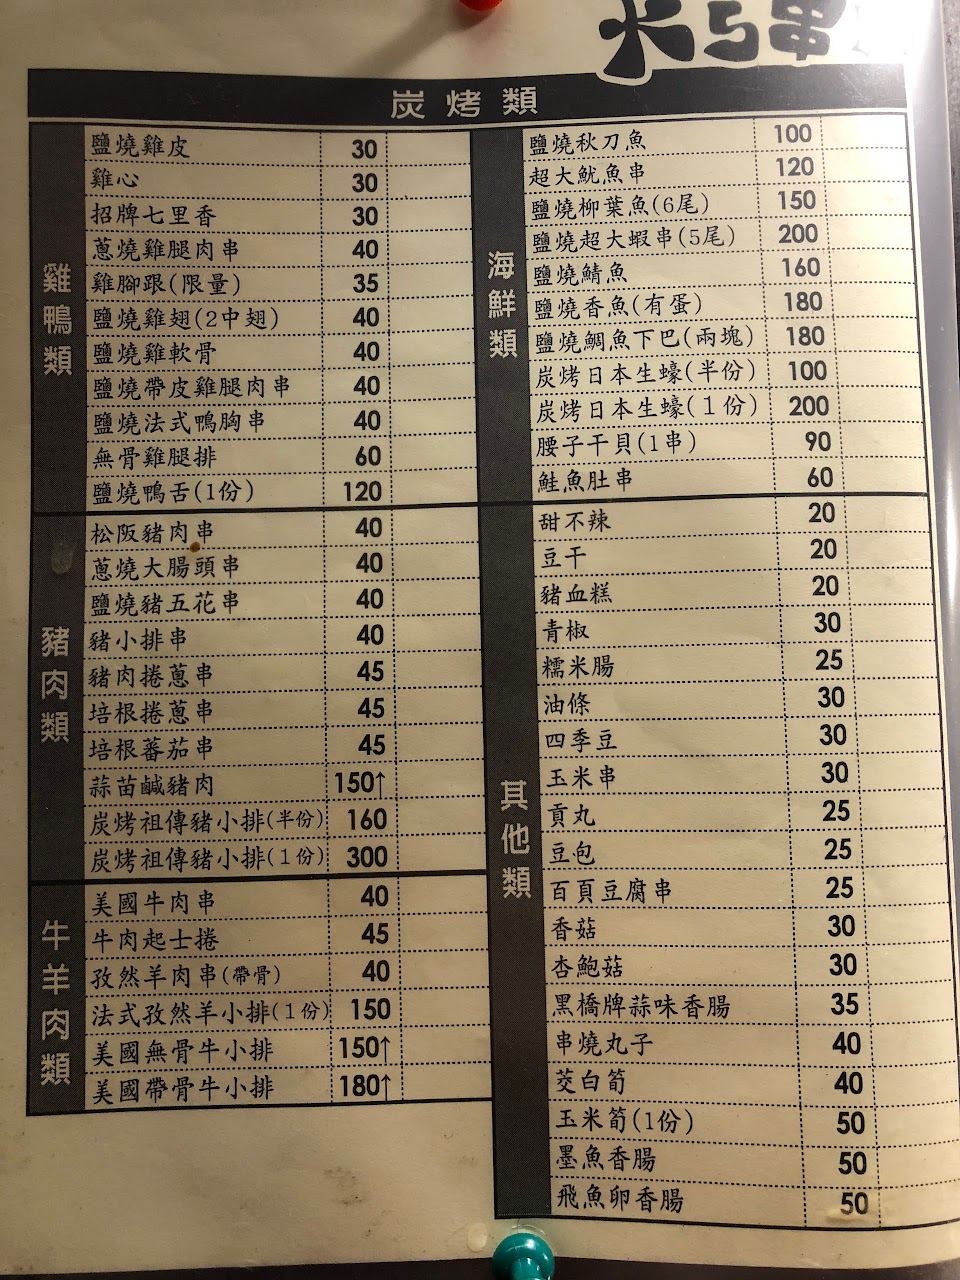 串
炭烤類
雞鴨類
鹽燒雞皮 30
雞心 30
招牌七里香 30
蔥燒雞腿肉串 40
雞腳跟(限量) 35
鹽燒雞翅(2中翅) 40
鹽燒雞軟骨 40
鹽燒帶皮雞腿肉串 40
鹽燒法式鴨胸串 40
無骨雞腿排 60
鹽燒鴨舌(1份) 120
豬肉類
松阪豬肉串 40
蔥燒大腸頭串 40
鹽燒豬五花串 40
豬小排串 40
豬肉捲蔥串 45
培根捲蔥串 45
培根蕃茄串 45
蒜苗鹹豬肉 150↑
炭烤祖傳豬小排(半份) 160
炭烤祖傳豬小排(1份) 300
牛羊肉類
美國牛肉串 40
牛肉起士捲 45
孜然羊肉串(帶骨) 40
法式孜然羊小排(1份) 150
美國無骨牛小排 150↑
美國帶骨牛小排 180↑
海鮮類
鹽燒秋刀魚 100
超大魷魚串 120
鹽燒柳葉魚(6尾) 150
鹽燒超大蝦串(5尾) 200
鹽燒鯖魚 160
鹽燒香魚(有蛋) 180
鹽燒鯛魚下巴(兩塊) 180
炭烤日本生蠔(半份) 100
炭烤日本生蠔(1份) 200
腰子干貝(1串) 90
鮭魚肚串 60
其他類
甜不辣 20
豆干 20
豬血糕 20
青椒 30
糯米腸 25
油條 30
四季豆 30
玉米串 30
貢丸 25
豆包 25
百頁豆腐串 25
香菇 30
杏鮑菇 30
黑橋牌蒜味香腸 35
串燒丸子 40
茭白筍 40
玉米筍(1份) 50
墨魚香腸 50
飛魚卵香腸 50